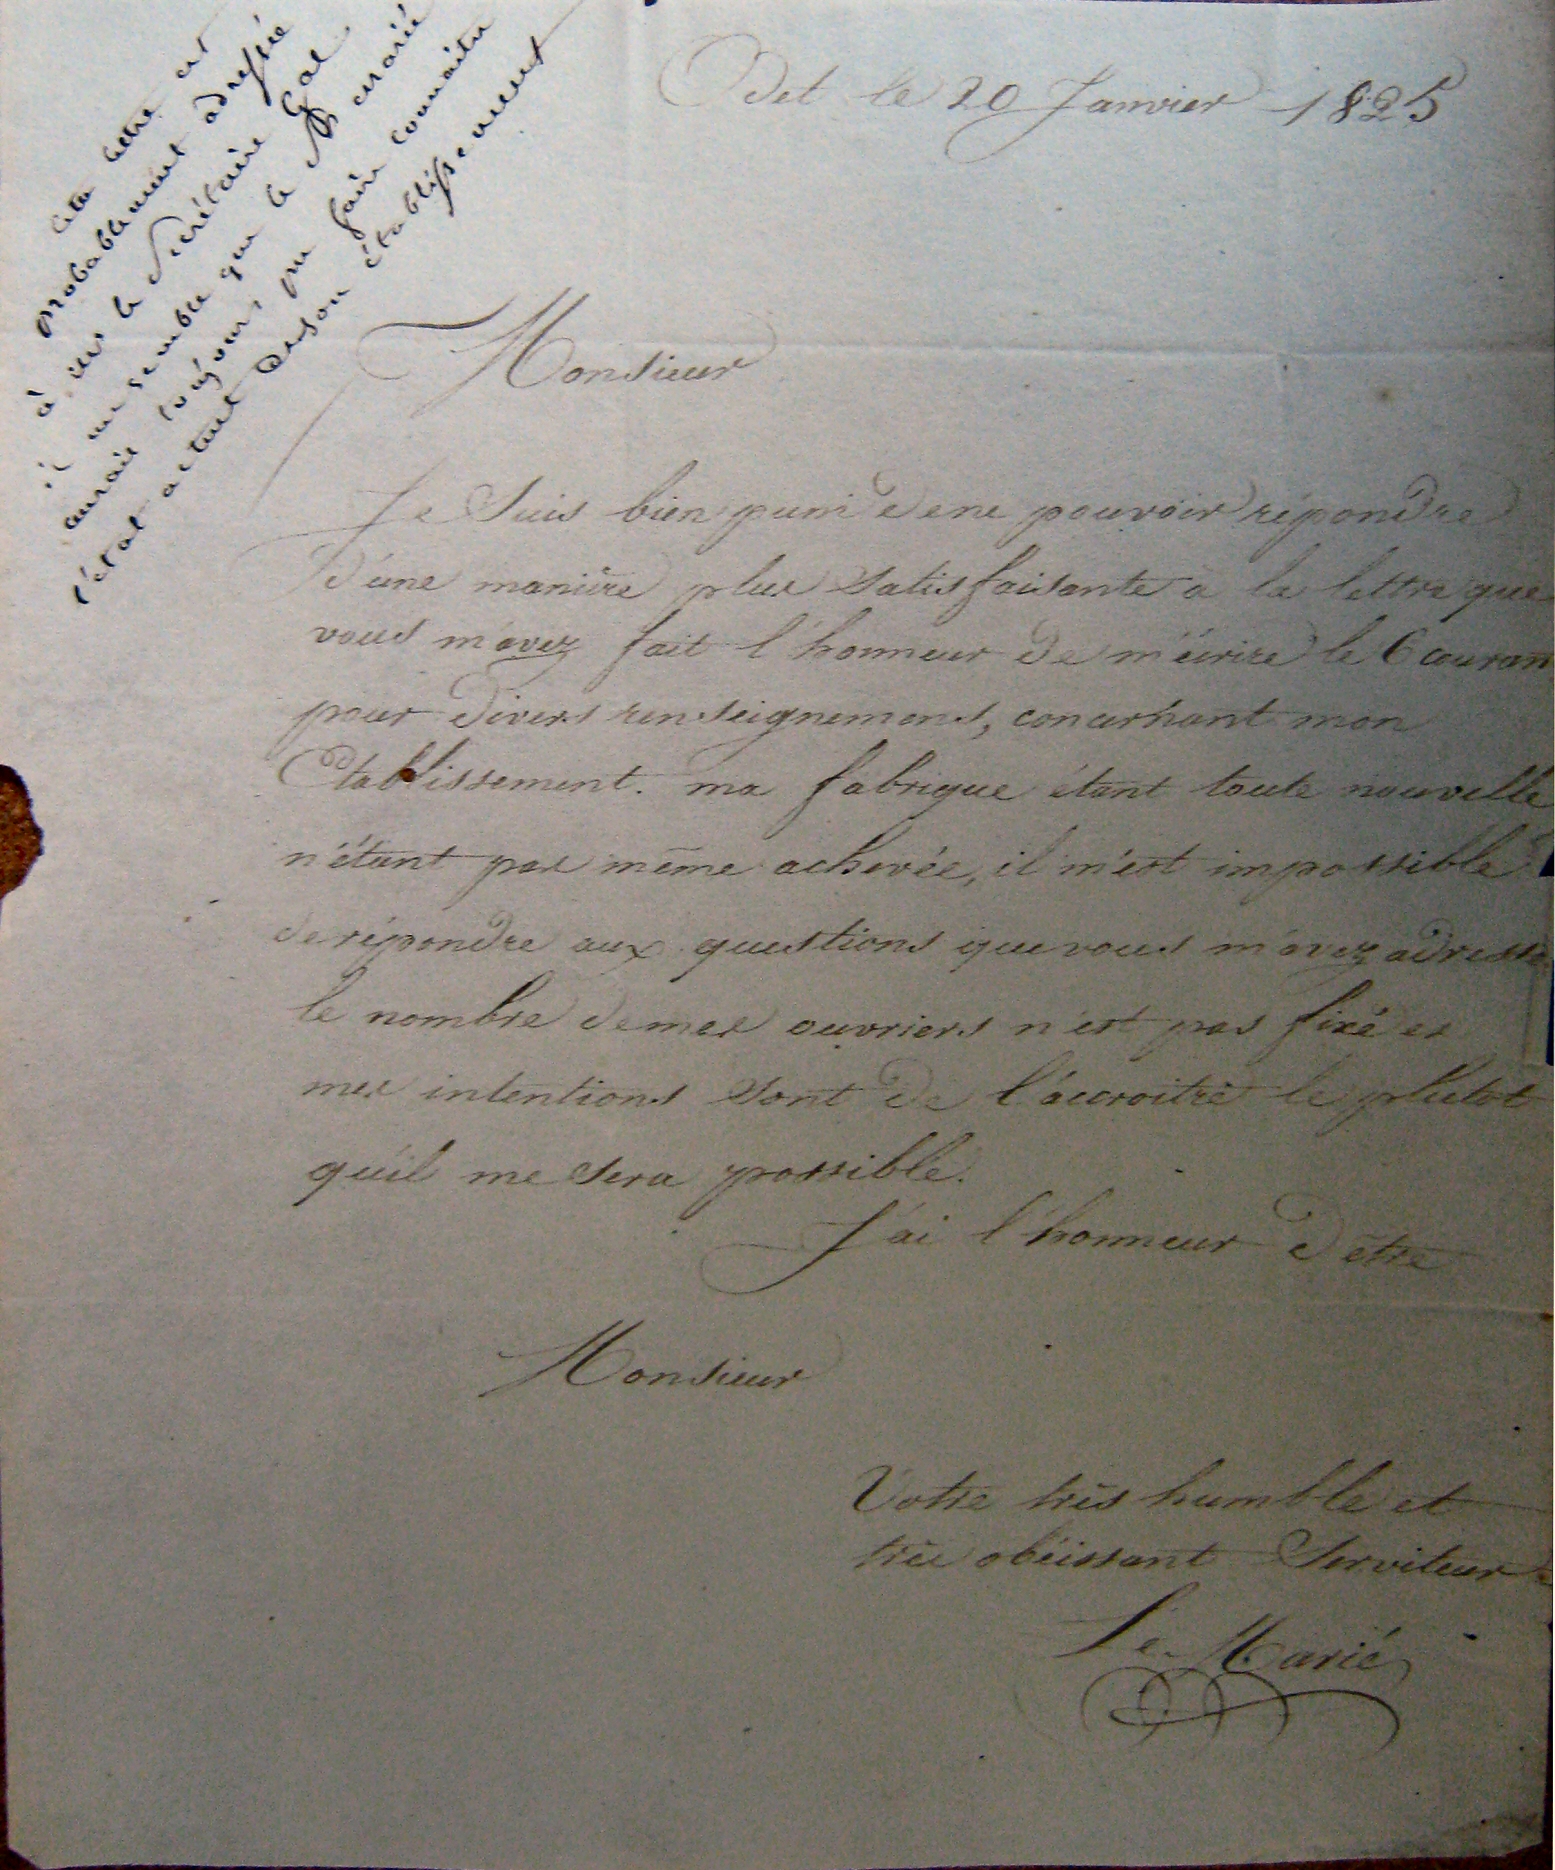 Odet le 20 Janvier 1825
cette lettre est
probablement adressée
à mr le Secrétaire Gal.
il me semble que le Sr marié
aurait toujours pu faire connaitre
l'état actuel de son établissement
Monsieur
Je Suis bien puni de ne pouvoir répondre
d'une manière plus Satisfaisante a la lettre que
vous m'avez fait l'honneur de m'écrire le 6 couran
pour divers renseignemens, concernant mon
Etablissement. ma fabrique étant toute nouvelle
n'étant pas même achevée, il m'est impossible
de répondre aux questions que vous m'avez adressé
le nombre de mes ouvriers n'est pas fixé et
mes intentions Sont de l'accroitre le plutot
qu'il me Sera possible.
J'ai l'honneur d'être
Monsieur
Votre très humble et
très obéissant Serviteur
Le Marié